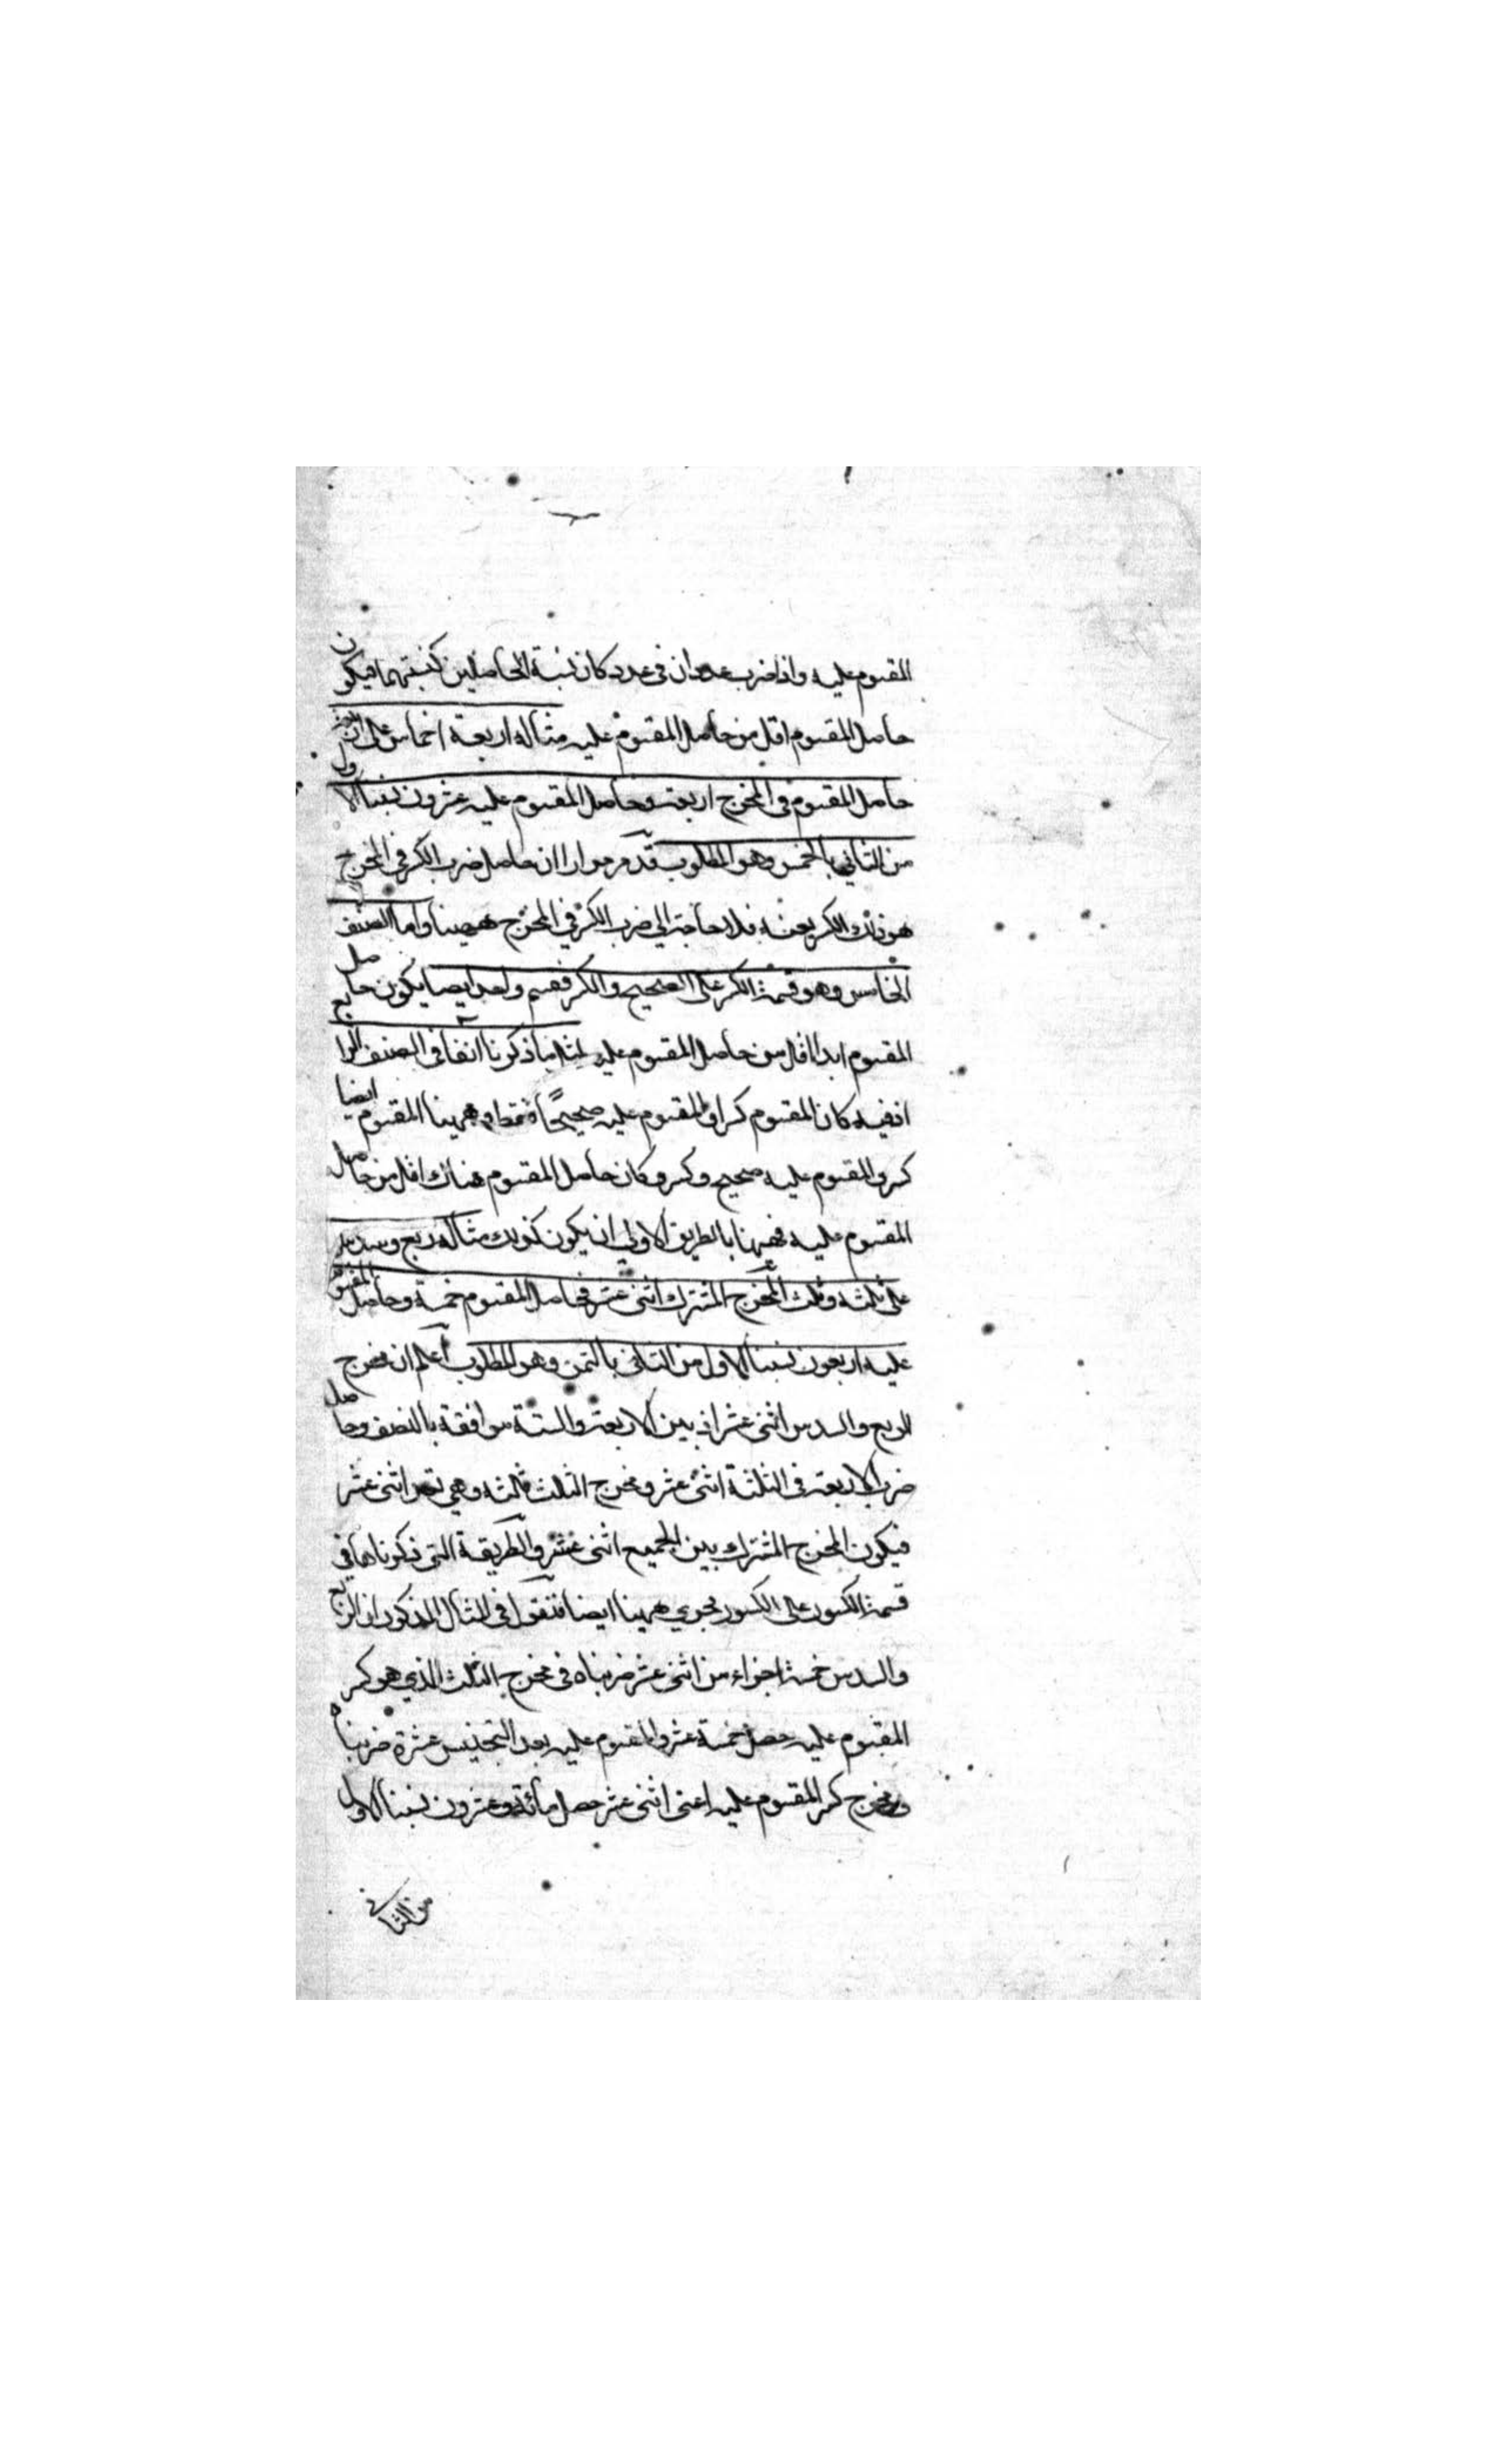 المقسوم عليه واذا ضرب عددان فى عدد كان نسبة الحاصلين كنسبتهما فيكون
حاصل المقسوم اقل من حاصل المقسوم عليه مثاله اربعة اخماس على
حاصل المقسوم فى المخرج اربعة وحاصل المقسوم عليه عشرون نسبنا الاول
من الثاني بالخمس وهو المطلوب قد مر مرارا ان حاصل ضرب الكسر فى المخرج
هو ذلك الكسر بعينه فلا حاجة الي ضرب الكسر في المخرج ههنا واما الصنف
الخامس وهو قسمة الكسر على الصحيح والكسر فقسم واحد ايضا يكون حاصل
المقسوم ابدا اقل من حاصل المقسوم عليه لمثل ما ذكرنا انفا فى الصنف الرابع
اذ فيه كان المقسوم كسرا والمقسوم عليه صحيحًا فقط وههنا المقسوم ايضا
كسر والمقسوم عليه صحيح وكسر وكان حاصل المقسوم هناك اقل من حاصل
المقسوم عليه فههنا بالطريق الاولي ان يكون كذلك مثاله ربع وسدس
على ثلثه وثلث المخرج المشترك اثنى عشر فحاصل المقسوم خمسة وحاصل المقسوم
عليه اربعون نسبنا الاول من الثانى بالثمن وهو المطلوب اعلم ان مخرج
الربع والسدس اثنى عشر اذ بين الاربعة والستة موافقة بالنصف وحاصل
ضرب الاربعة فى الثلثة اثنى عشر ومخرج الثلث ثلثه وهي تعد اثنى عشر
فيكون المخرج المشترك بين الجميع اثنى عشر والطريقة التى ذكرناها فى
قسمة الكسور على الكسور يجري ههنا ايضا فنقول فى المثال المذكور ان الربع
والسدس خمسة اجزاء من اثنى عشر ضربناه فى مخرج الثلث الذي هو كسر
المقسوم عليه حصل خمسة عشر والمقسوم عليه بعد التجنيس عشرة ضربناه
فى مخرج كسر المقسوم عليه اعنى اثنى عشر حصل مائة وعشرون نسبنا الاول
من الثانى